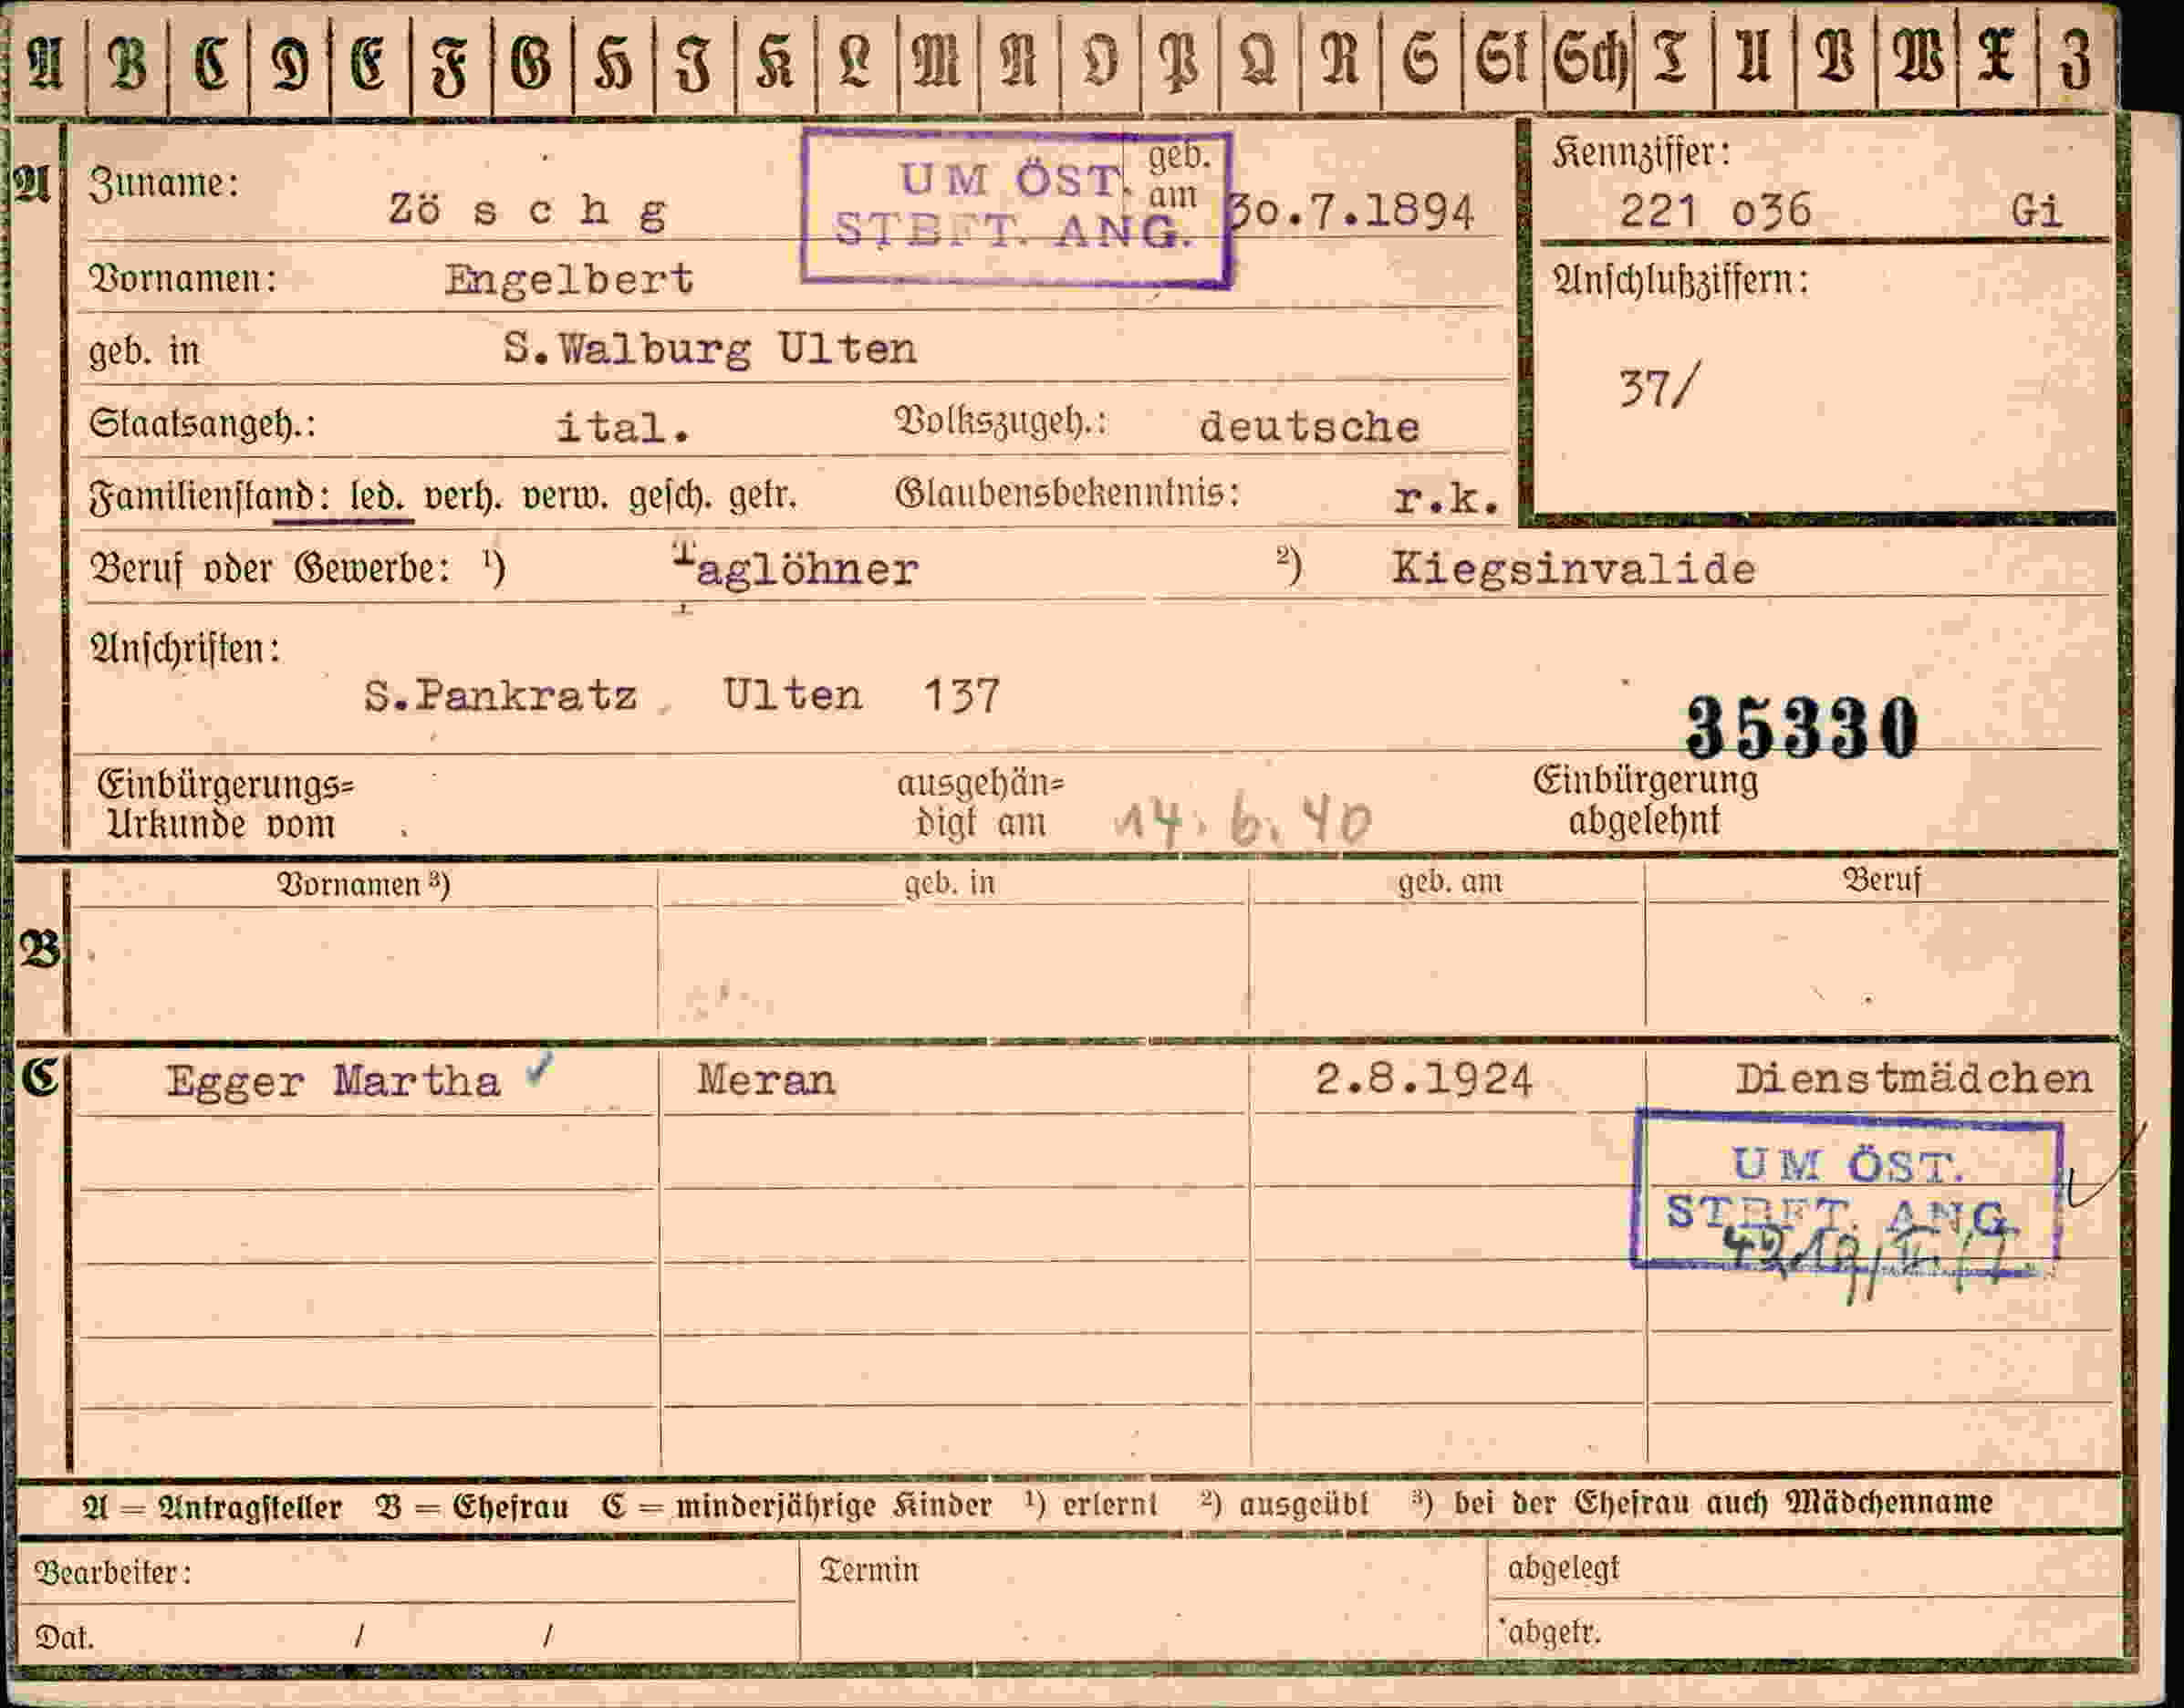 A B C D E F G H J K L M N O P Q R S St Sch T U V W X Z
A Zuname: Zöschg geb. am 30.7.1894
UM ÖST.
STBFT. ANG.
Kennziffer:
221 o36 Gi
Vornamen: Engelbert
Anschlußziffern:
37/
geb. in S.Walburg Ulten
Staatsangeh.: ital. Volkszugeh.: deutsche
Familienstand: led. verh. verw. gesch. getr. Glaubensbekenntnis: r.k.
Beruf oder Gewerbe: ¹) Taglöhner ²) Kiegsinvalide
Anschriften:
S.Pankratz, Ulten 137
35330
Einbürgerungs=
Urkunde vom
ausgehän=
digt am 14.6.40
Einbürgerung
abgelehnt
B Vornamen ³) geb. in geb. am Beruf
C Egger Martha ✓ Meran 2.8.1924 Dienstmädchen
UM ÖST.
STBFT. ANG.
A = Antragsteller B = Ehefrau C = minderjährige Kinder ¹) erlernt ²) ausgeübt ³) bei der Ehefrau auch Mädchenname
Bearbeiter: Termin abgelegt
Dat. / / abgetr.